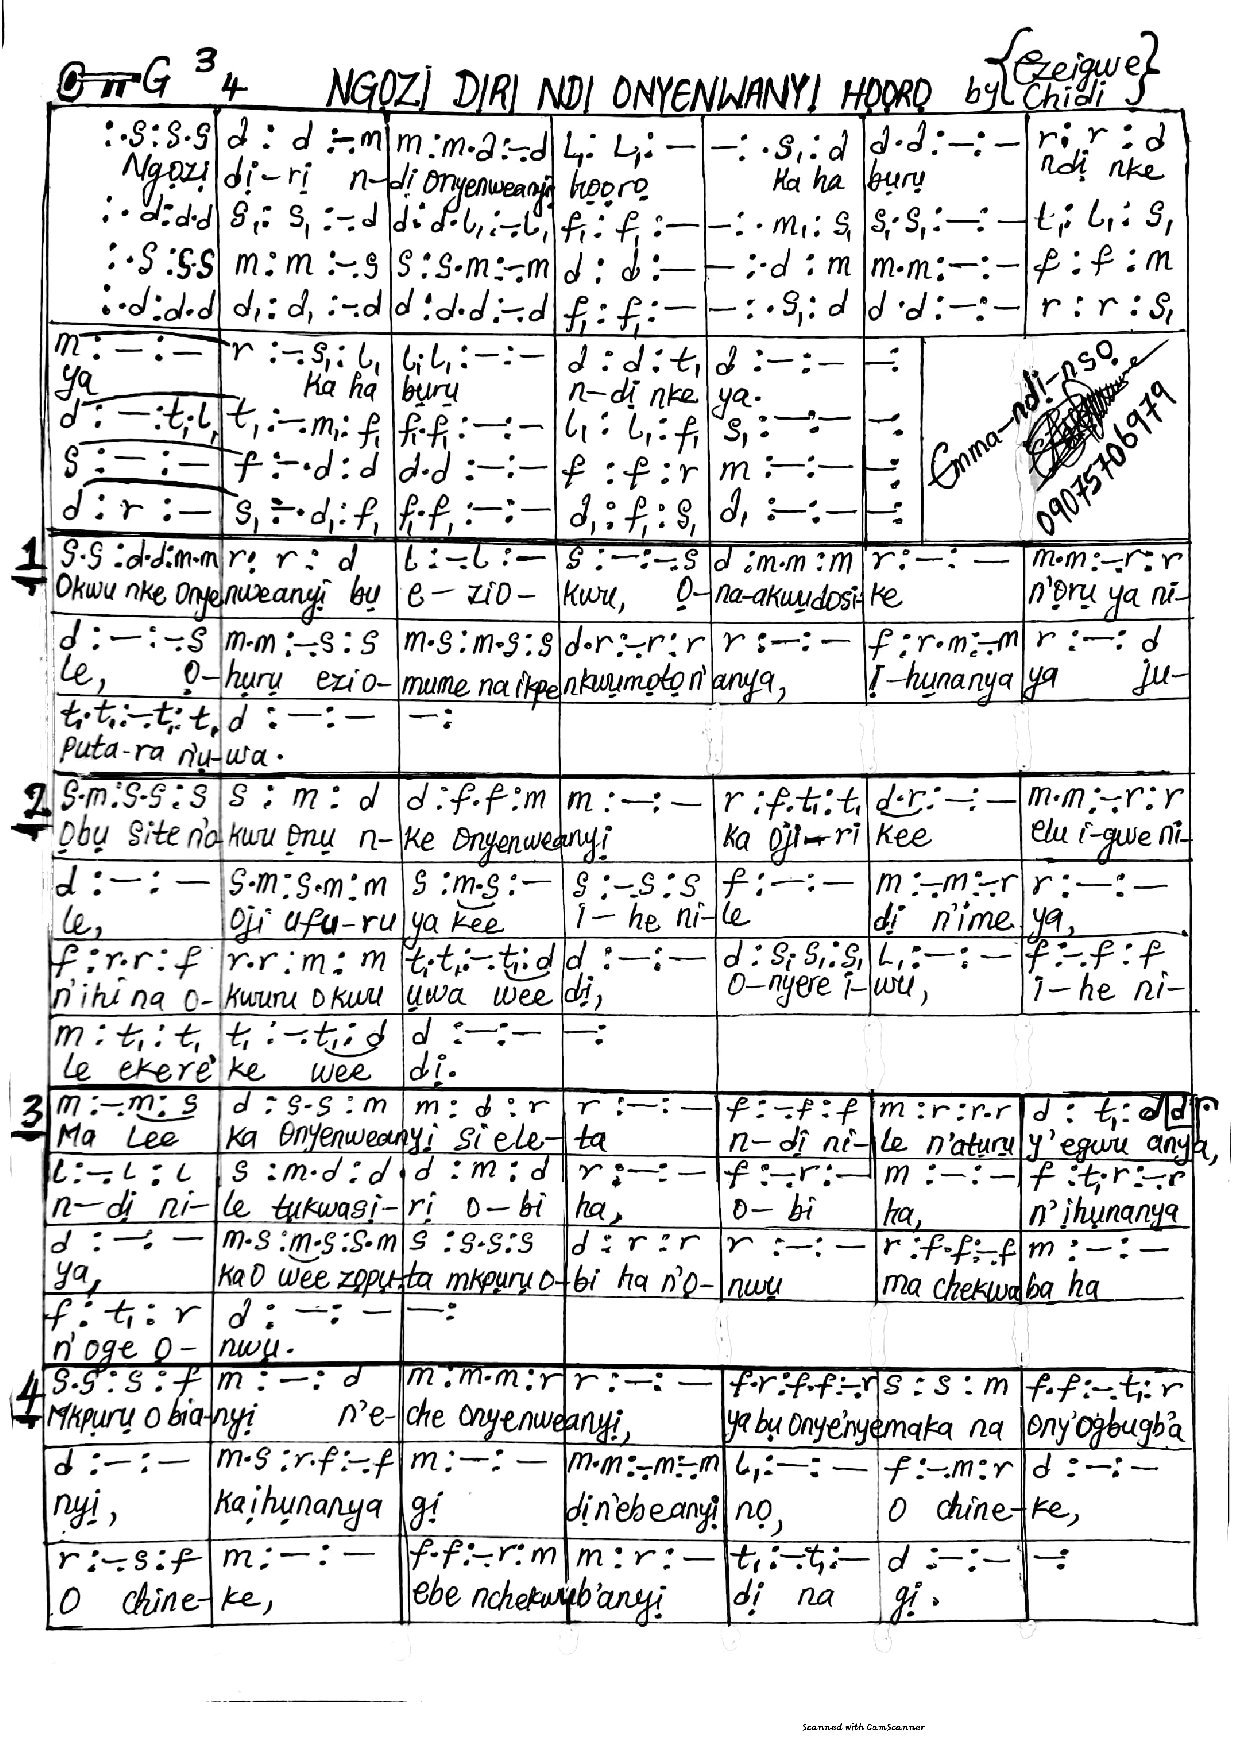 G 3/4 NGỌZI DỊRỊ NDI ONYENWANYỊ HỌỌRỌ by {Ezeigwe Chidi}
:·s:s·s | d : d :-·m | m:m·d:-·d | l₁: l₁:— | —:·s₁:d | d·d:—:— | r: r : d
Ngọzị dị-rị n-dị Onyenweanyị họọrọ Ka ha bụrụ ndị nke
:·d:d·d | s₁: s₁ :-·d | d:d·l₁:-·l₁ | f₁: f₁ :— | —:·m₁: s₁ | s₁·s₁:—:— | t₁: l₁: s₁
:·s:s·s | m:m :-·s | s:s·m:-·m | d : d :— | —:·d : m | m·m:—:— | f : f : m
:·d:d·d | d₁: d₁ :-·d | d:d·d:-·d | f₁: f₁:— | —:·s₁: d | d·d:—:— | r : r : s₁
m :—:— | r :-·s₁: l₁ | l₁·l₁:—:— | d : d : t₁ | d :—:— | —:
ya Ka ha bụrụ n-dị nke ya.
d :—:t₁·l₁ | t₁:-·m₁: f₁ | f₁·f₁:—:— | l₁: l₁: f₁ | s₁:—:— | —:
s :—:— | f :-·d : d | d·d:—:— | f : f : r | m :—:— | —:
d : r :— | s₁:-·d₁: f₁ | f₁·f₁:—:— | d₁: f₁: s₁ | d₁:—:— | —:
Emma-ndị-nsọ
09075706979
1 s·s:d·d:m·m | r: r : d | l:-·l:— | s:—:-·s | d:m·m:m | r:—:— | m·m:-·r:r
Okwu nke Onyenweanyị bụ e-zio-kwu, Ọ-na-akwụdosi-ke n'ọrụ ya ni-
d :—:-·s | m·m:-·s:s | m·s:m·s:s | d·r:-·r:r | r:—:— | f:r·m:-·m | r:—: d
le, Ọ-hụrụ ezio-mume na ikpe nkwụmọtọ n'anya, Ị-hụnanya ya ju-
t₁·t₁:-·t₁:t₁ | d :—:— | —:
puta-ra n'ụ-wa.
2 s·m:s·s:s | s : m : d | d:f·f:m | m:—:— | r:f·t₁:t₁ | d·r:—:— | m·m:-·r:r
Ọbụ site n'okwu ọnụ n-ke Onyenweanyị ka oji-ri kee elu i-gwe ni-
d :—:— | s·m:s·m:m | s:m·s:— | s:-·s:s | f:—:— | m:-·m:-·r | r:—:—
le, Oji ufu-ru ya kee i-he ni-le dị n'ime ya,
f:r·r:f | r·r:m:m | t₁·t₁:-·t₁:d | d:—:— | d:s₁·s₁:s₁ | l₁:—:— | f:-·f:f
n'ihi na o-kwuru okwu ụwa wee dị, O-nyere i-wu, i-he ni-
m : t₁: t₁ | t₁:-·t₁: d | d :—:— | —:
le ekere' ke wee dị.
3 m:-·m:s | d:s·s:m | m: d : r | r:—:— | f:-·f:f | m:r:r·r | d: t₁:d
Ma Lee ka Onyenweanyị si ele-ta n-dị ni-le n'atụrụ y'egwu anya,
l:-·l:l | s:m·d:d | d:m:d | r:—:— | f:-·r:— | m:—:— | f:t₁·r:-·r
n-dị ni-le tụkwasị-rị o-bi ha, o-bi ha, n'ịhụnanya
d :—:— | m·s:m·s:s·m | s:s·s:s | d:r:r | r:—:— | r:f·f:-·f | m:—:—
ya, ka O wee zọpụ-ta mkpụrụ o-bi ha n'ọ-nwụ ma chekwaba ha
f : t₁: r | d :—:— | —:
n'oge ọ-nwụ.
4 s·s:s:f | m:—: d | m:m·m:r | r:—:— | f·r:f·f:-·r | s:s:m | f·f:-·t₁:r
Mkpụrụ Obianyị n'e-che Onyenweanyị, ya bụ Onye'nyemaka na Ony'ọgbụgb'a
d:—:— | m·s:r·f:-·f | m:—:— | m·m:-·m:-·m | l₁:—:— | f:-·m:r | d:—:—
nyị, Ka ịhụnanya gị dị n'ebe anyị nọ, O chine-ke,
r:-·s:f | m:—:— | f·f:-·r:m | m:r:— | t₁:-·t₁:— | d:—:— | —:
O chine-ke, ebe nchekwub'anyị dị na gị.
Scanned with CamScanner